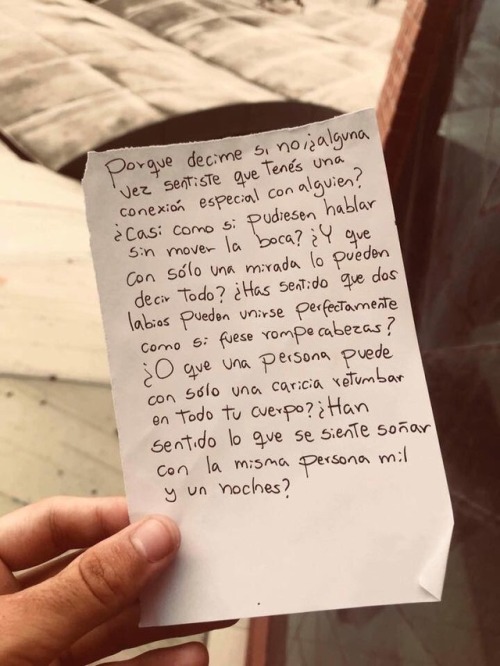 Porque decime si no, ¿alguna
vez sentiste que tenés una
conexión especial con alguien?
¿Casi como si pudiesen hablar
sin mover la boca? ¿Y que
con sólo una mirada lo pueden
decir todo? ¿Has sentido que dos
labios pueden unirse perfectamente
como si fuese rompecabezas?
¿O que una persona puede
con sólo una caricia retumbar
en todo tu cuerpo? ¿Han
sentido lo que se siente soñar
con la misma persona mil
y un noches?